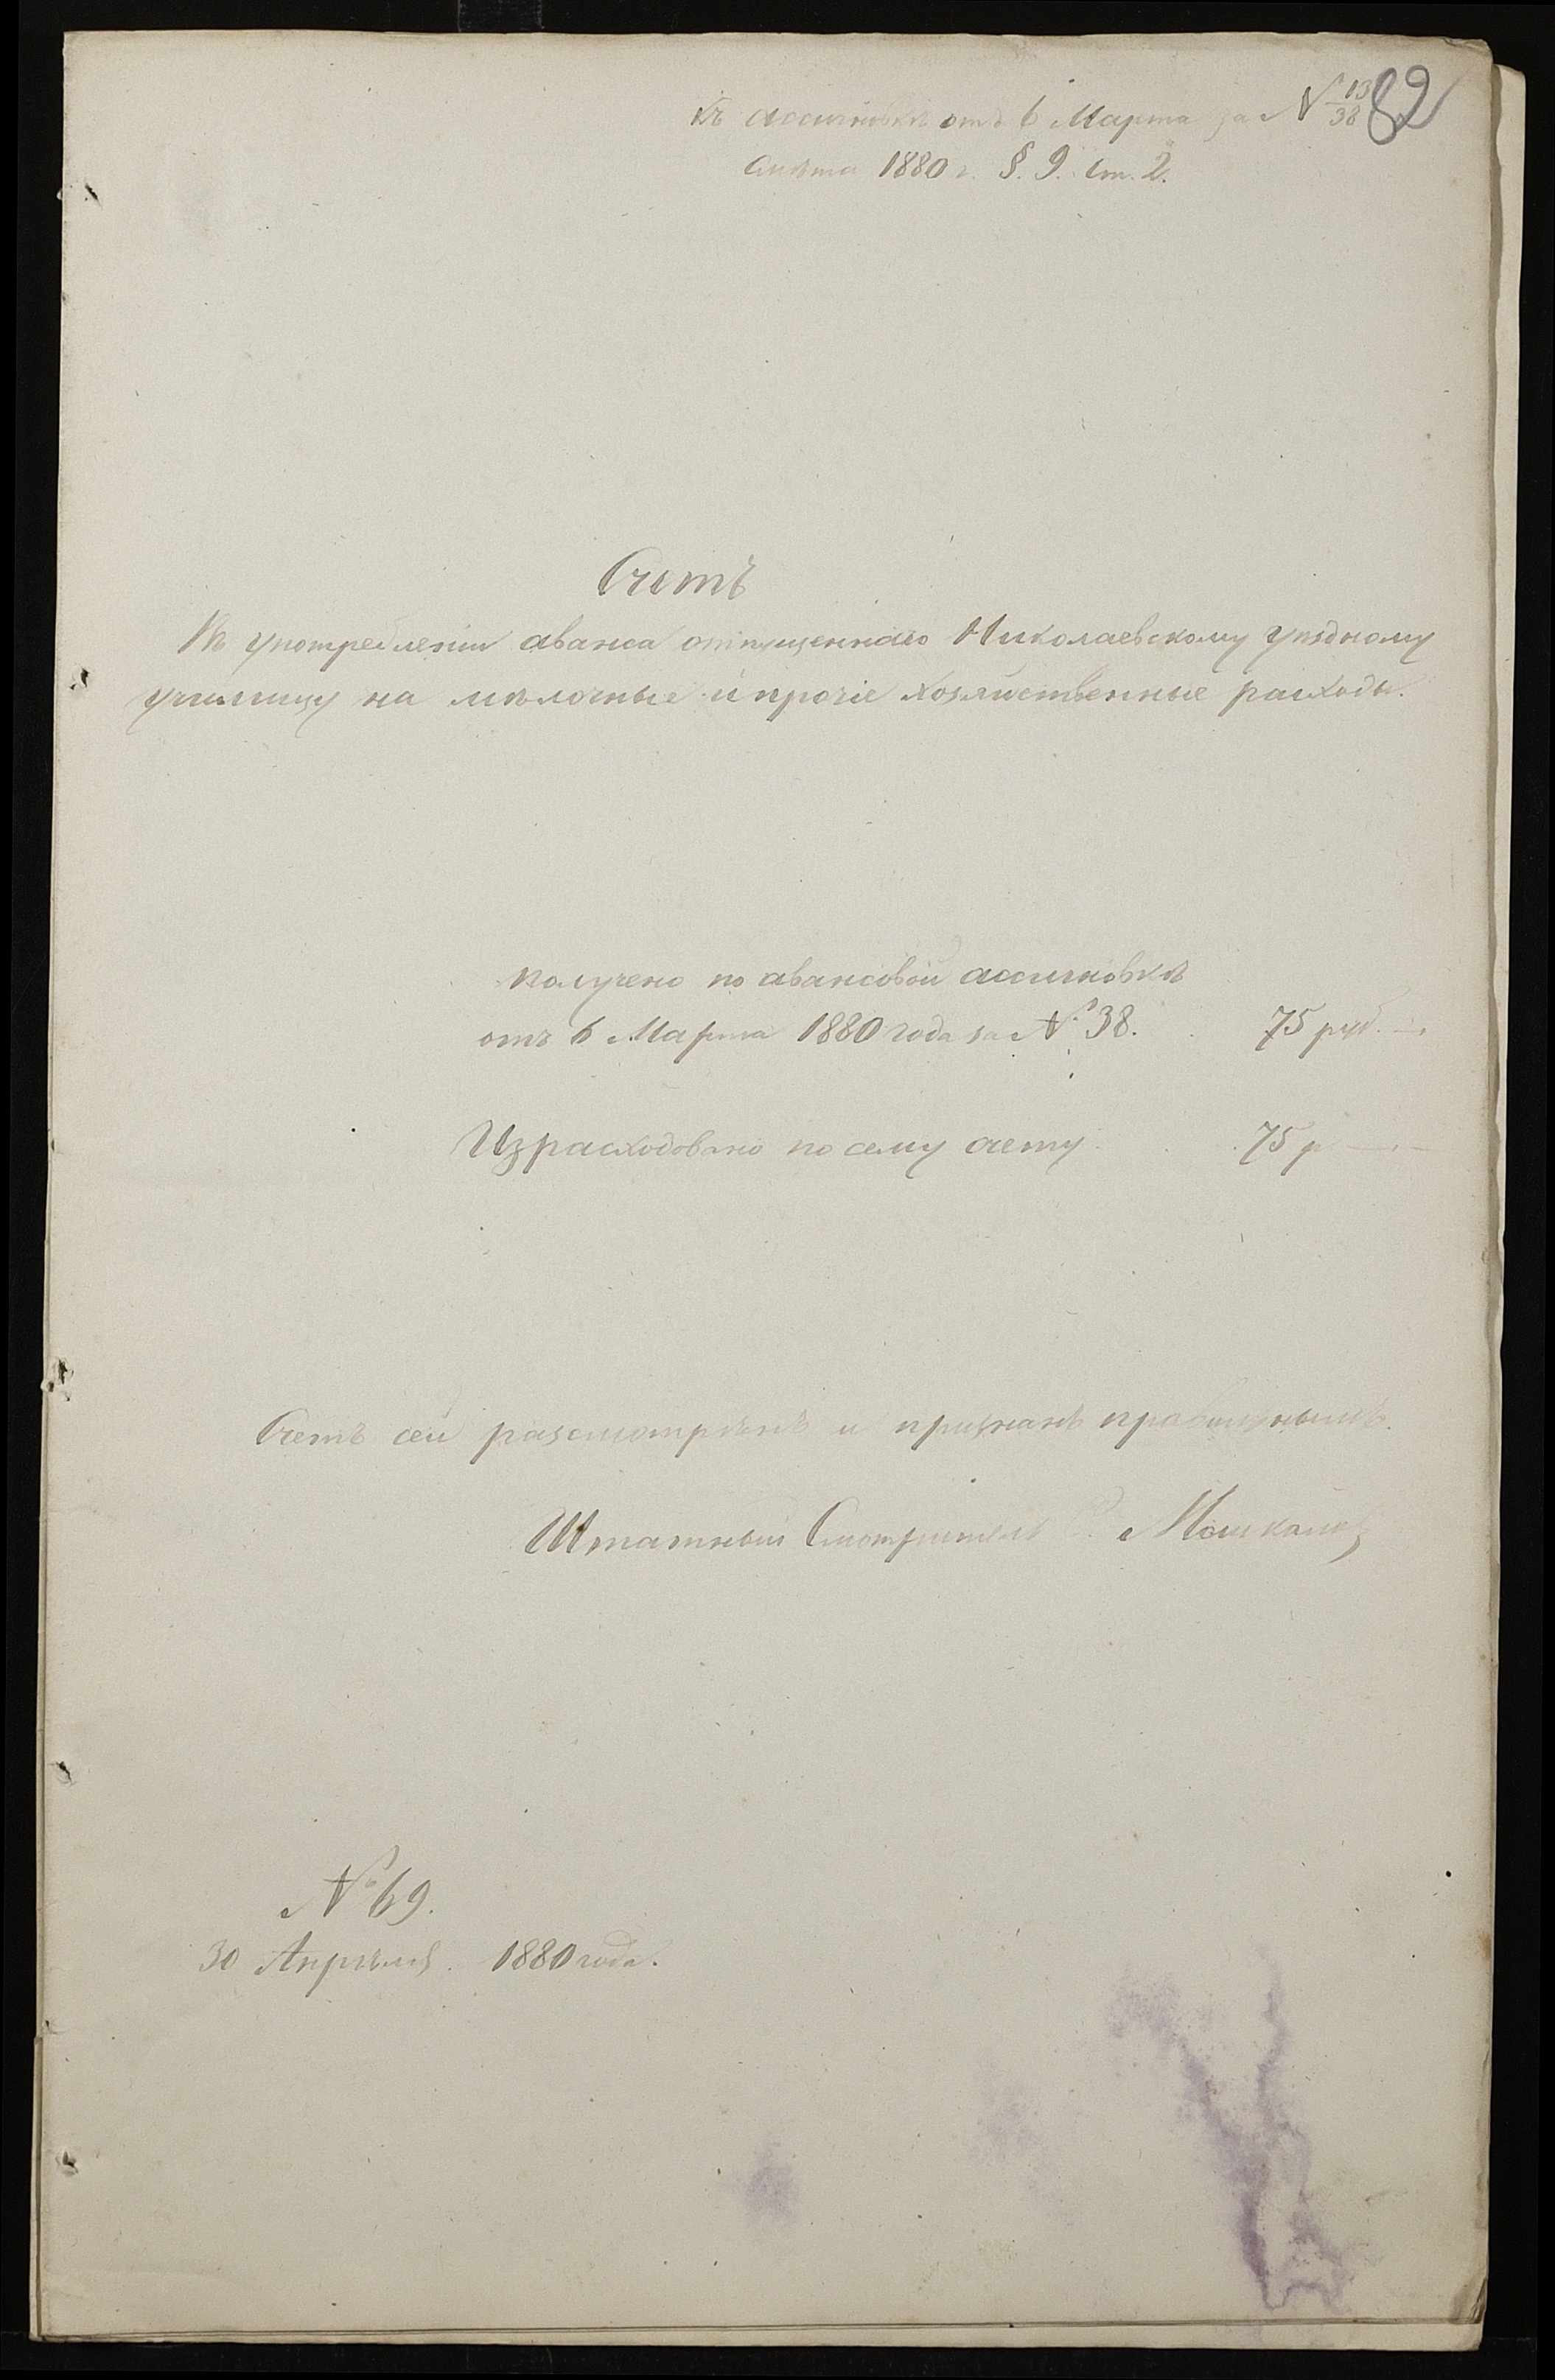 82
къ ассигновкѣ отъ 6 Марта за № 13/38
Смѣта 1880 г. §. 9. Ст. 2.
Счетъ
Въ употребленіи аванса отпущеннаго Николаевскому уѣздному
училищу на мѣлочные и прочіе хозяйственные расходы.
Получено по авансовой ассигновкѣ
отъ 6 Марта 1880 года за № 38. 75 руб. —
Израсходовано по сему счету 75 р —
Счетъ сей разсмотрѣнъ и признанъ правильнымъ.
Штатный Смотритель Мошкалов
№ 69.
30 Апрѣля 1880 года.